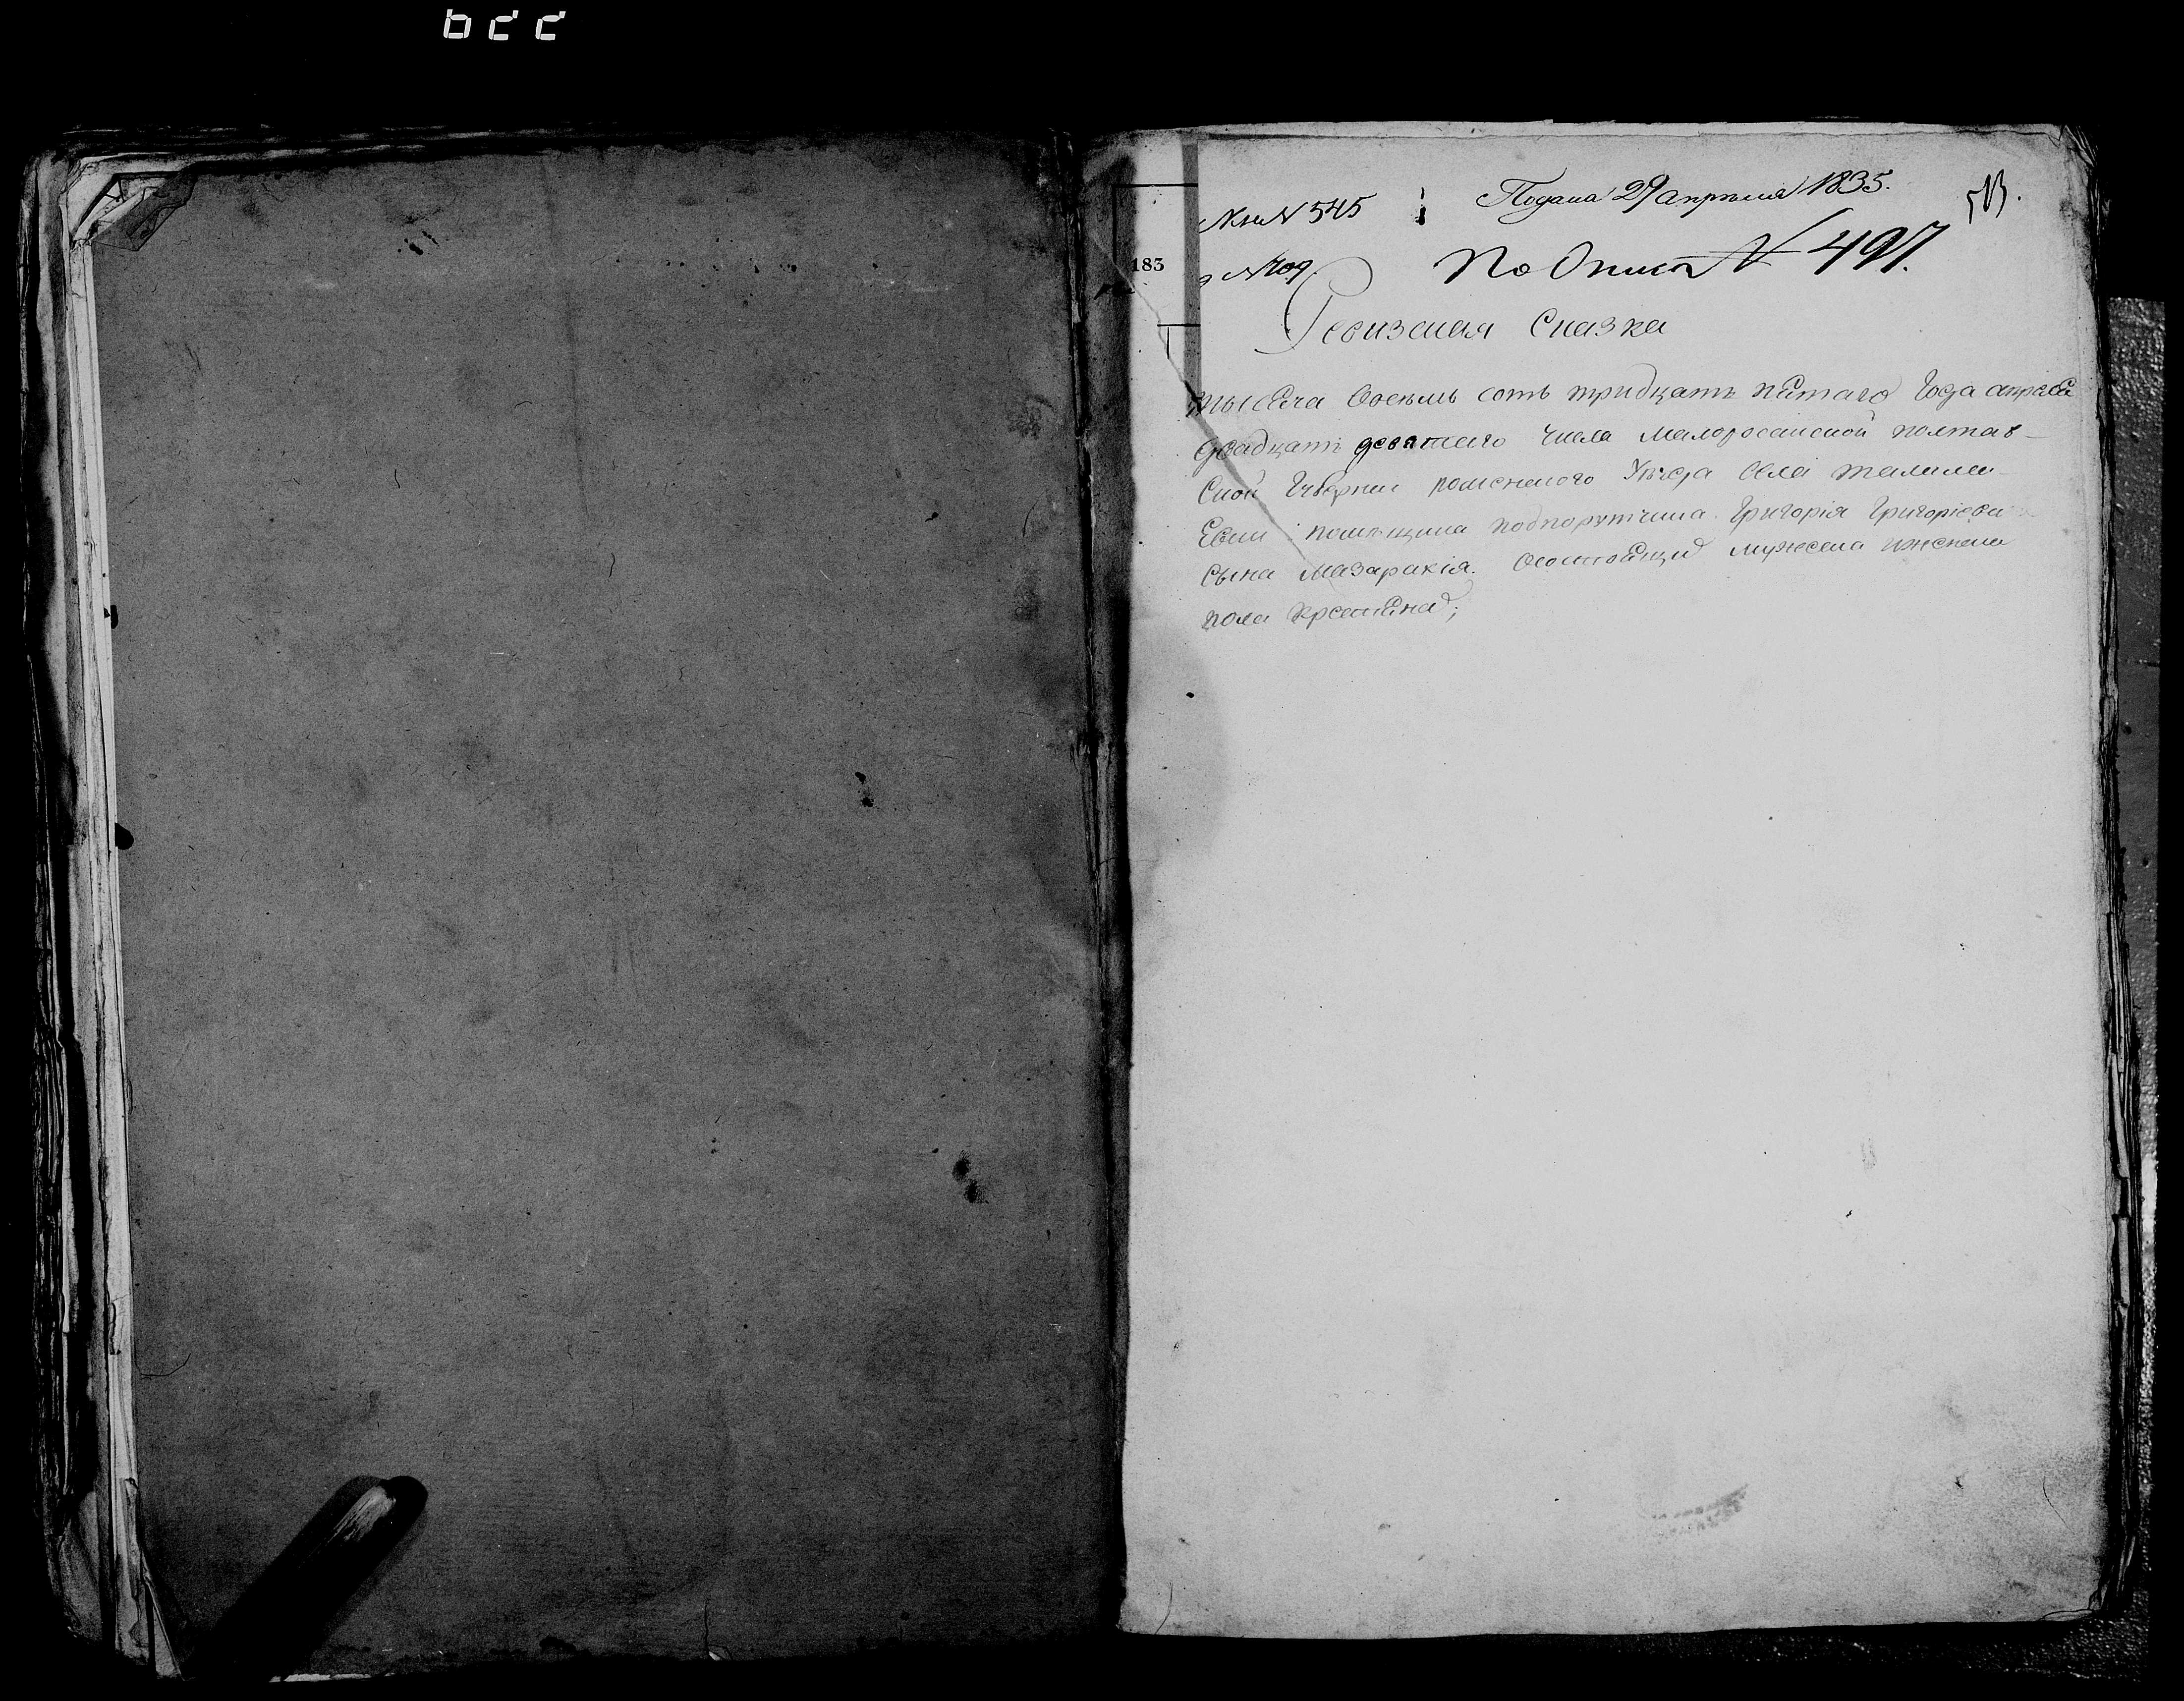 Подана 29 апреля 1835.
Кн N 545
513.
N 409
По Описи N 497.
183
Ревизская Сказка
тысяча восемь сотъ тридцать пятаго года апреля
двадцать девятаго числа малоросийской полтав-
ской губернии роменского уезда села талала-
евки помещика подпорутчика Григорія Григорієва
сына Мазаракія. О состоящих мужеска и женска
пола крестянах;